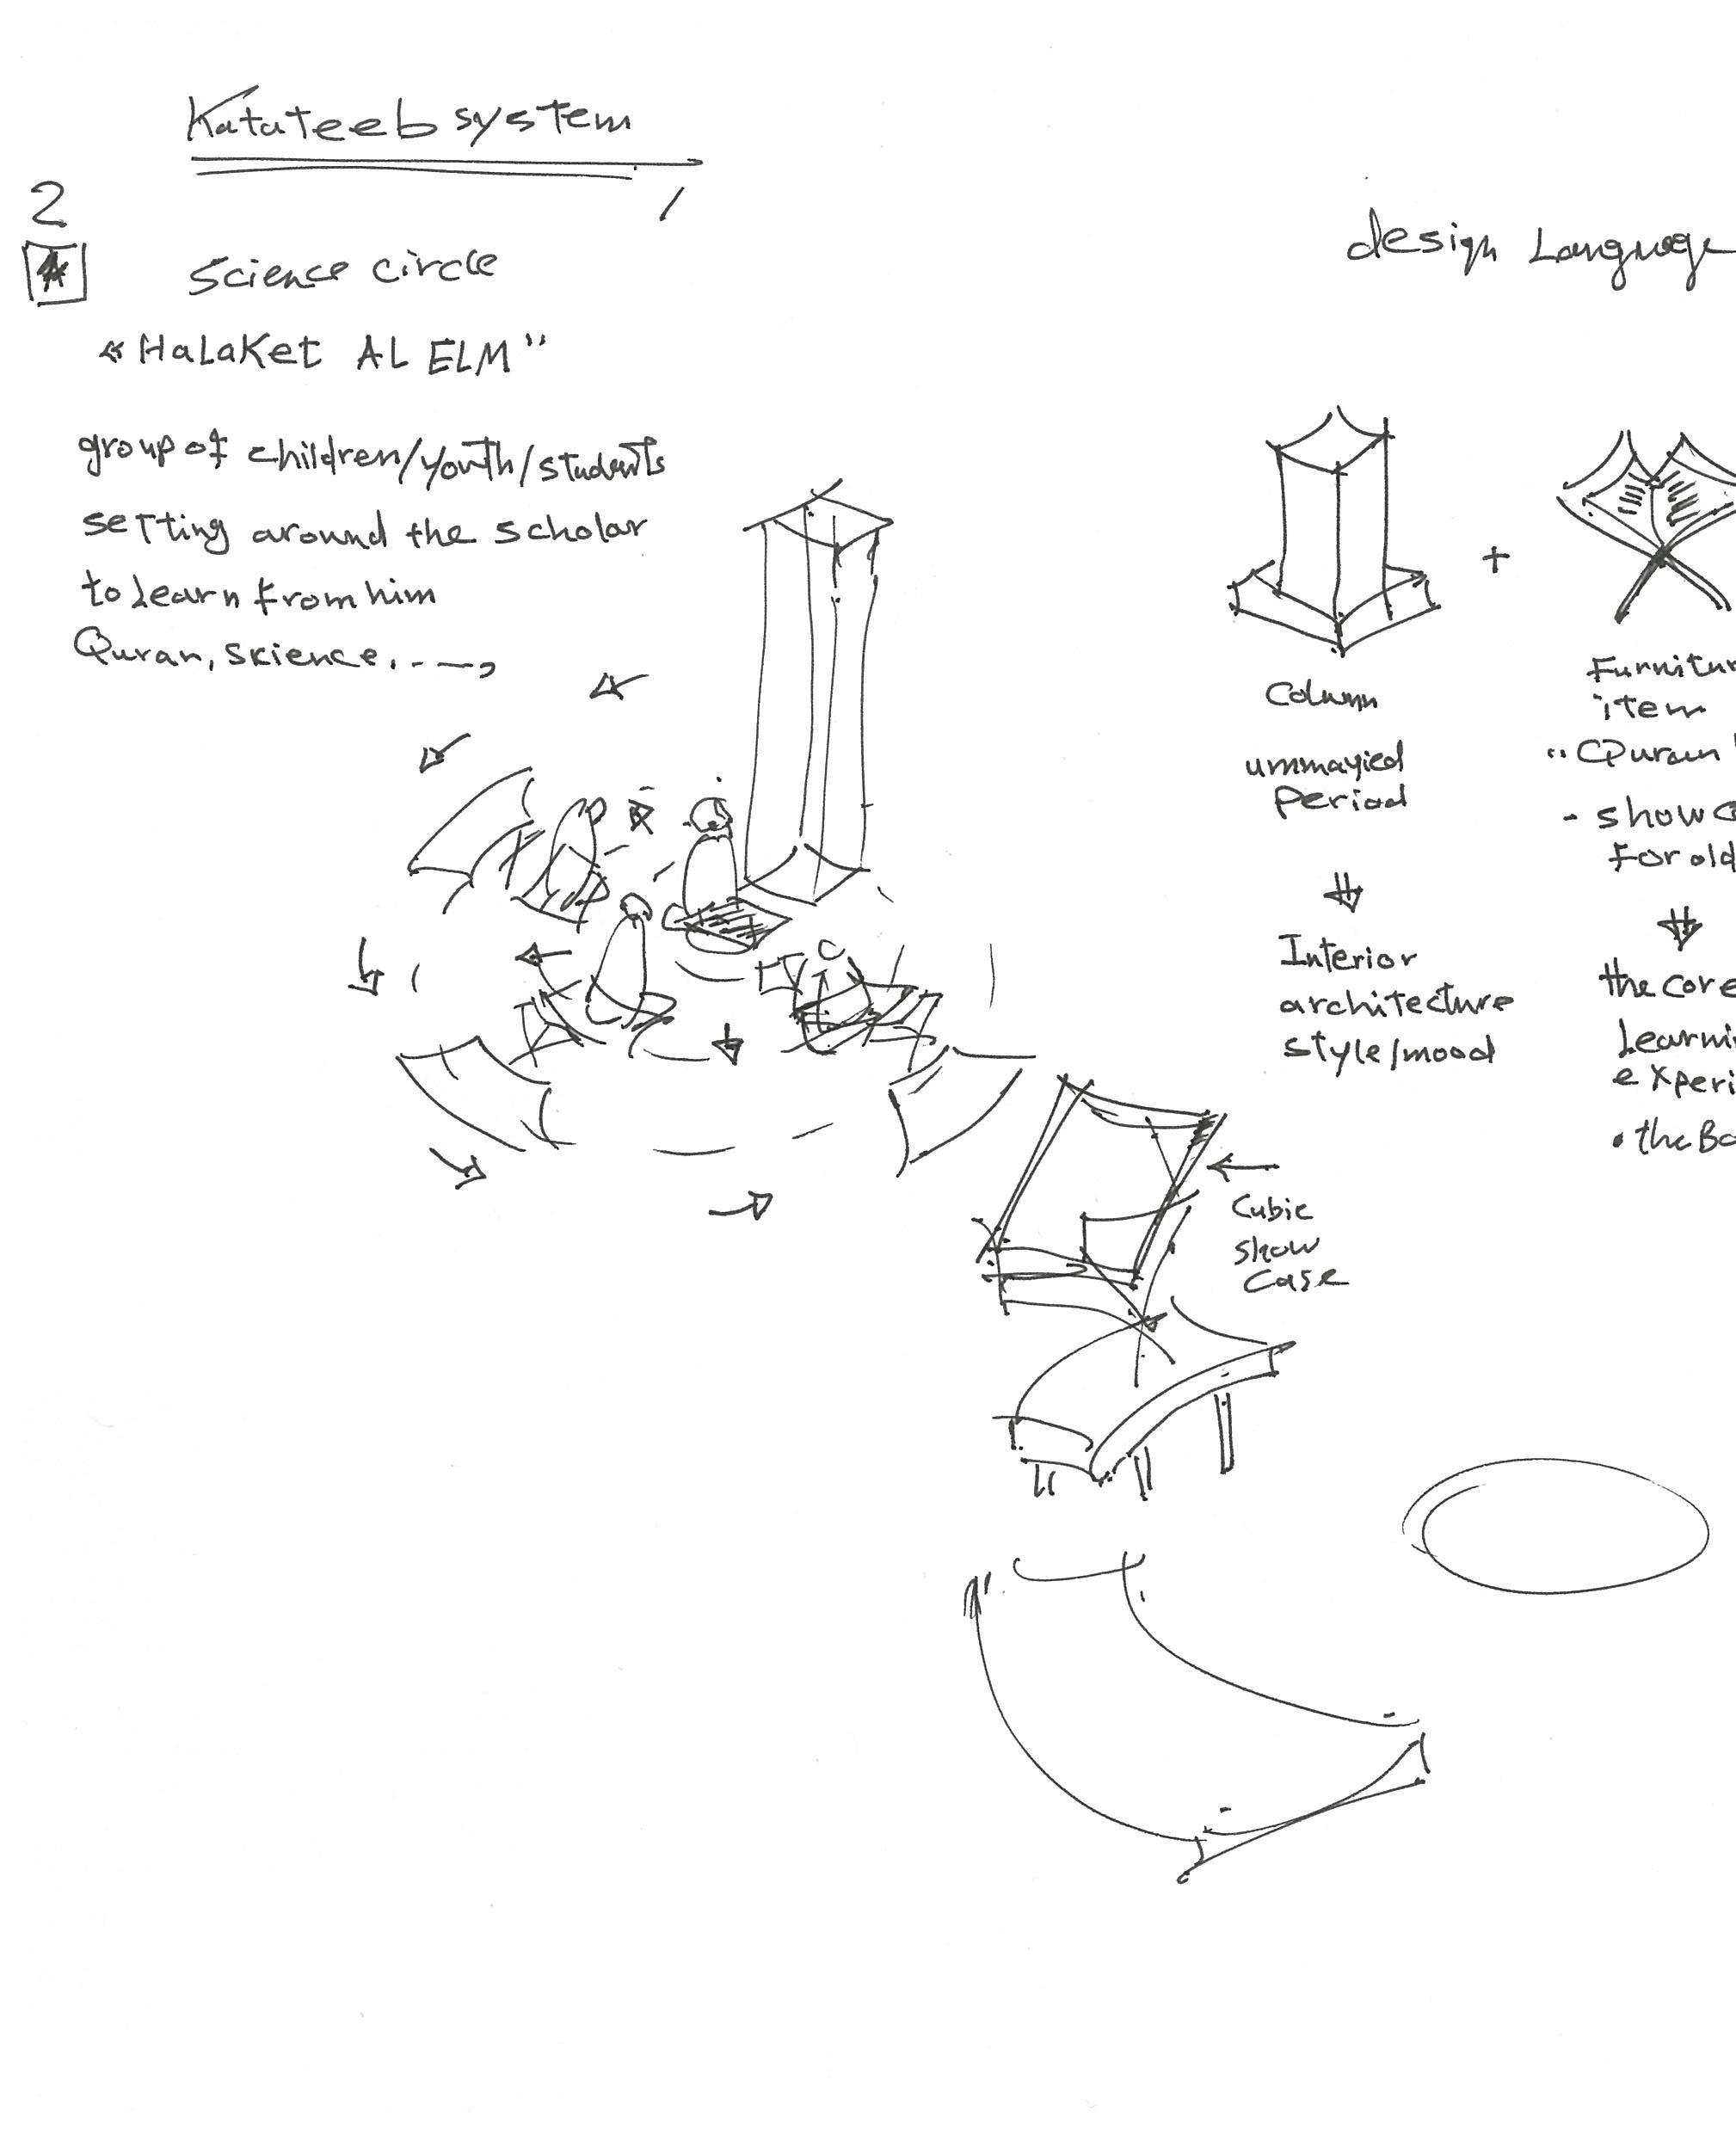 Katateeb system
2
science circle
"HaLaKet AL ELM"
group of children/youth/students
setting around the scholar
to learn from him
Quran, skience,
design Language
+
Column
ummayied
period
Interior
architecture
style/mood
Furnitur
item
"Quran
- show c
For old
the core
Learni
experi
• the Bo
Cubic
show
case